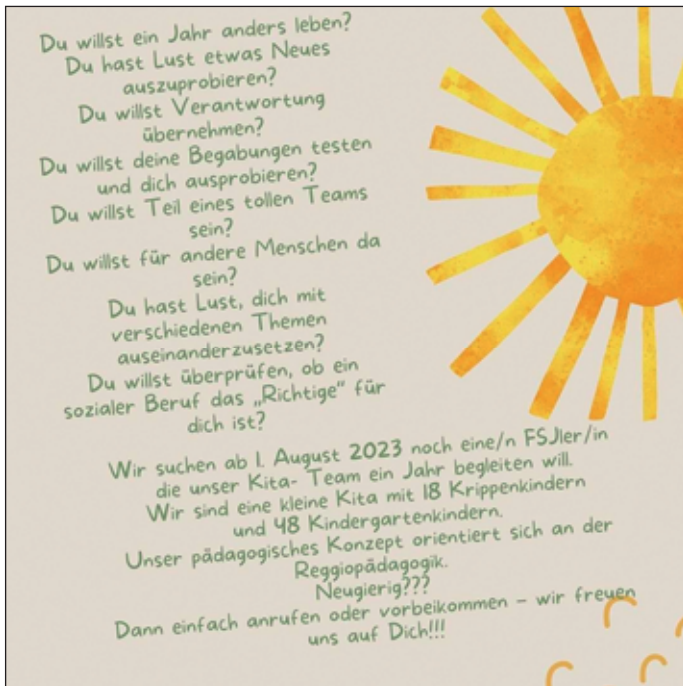 Du willst ein Jahr anders leben?
Du hast Lust etwas Neues
auszuprobieren?
Du willst Verantwortung
übernehmen?
Du willst deine Begabungen testen
und dich ausprobieren?
Du willst Teil eines tollen Teams
sein?
Du willst für andere Menschen da
sein?
Du hast Lust, dich mit
verschiedenen Themen
auseinanderzusetzen?
Du willst überprüfen, ob ein
sozialer Beruf das „Richtige“ für
dich ist?
Wir suchen ab 1. August 2023 noch eine/n FSJler/in
die unser Kita- Team ein Jahr begleiten will.
Wir sind eine kleine Kita mit 18 Krippenkindern
und 48 Kindergartenkindern.
Unser pädagogisches Konzept orientiert sich an der
Reggiopädagogik.
Neugierig???
Dann einfach anrufen oder vorbeikommen – wir freuen
uns auf Dich!!!